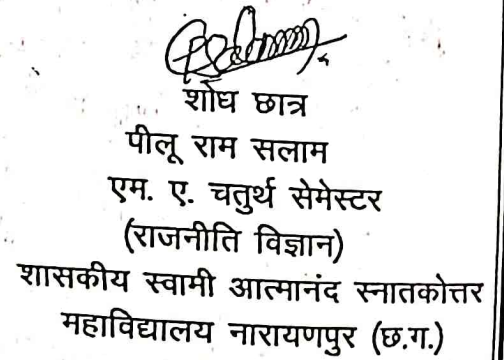 शोध छात्र
पीलू राम सलाम
एम. ए. चतुर्थ सेमेस्टर
(राजनीति विज्ञान)
शासकीय स्वामी आत्मानंद स्नातकोत्तर
महाविद्यालय नारायणपुर (छ.ग.)